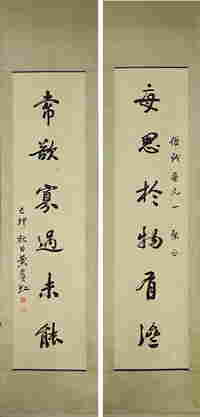 每思於物有濟
常欲寡過未能
己卯秋日黃賓虹